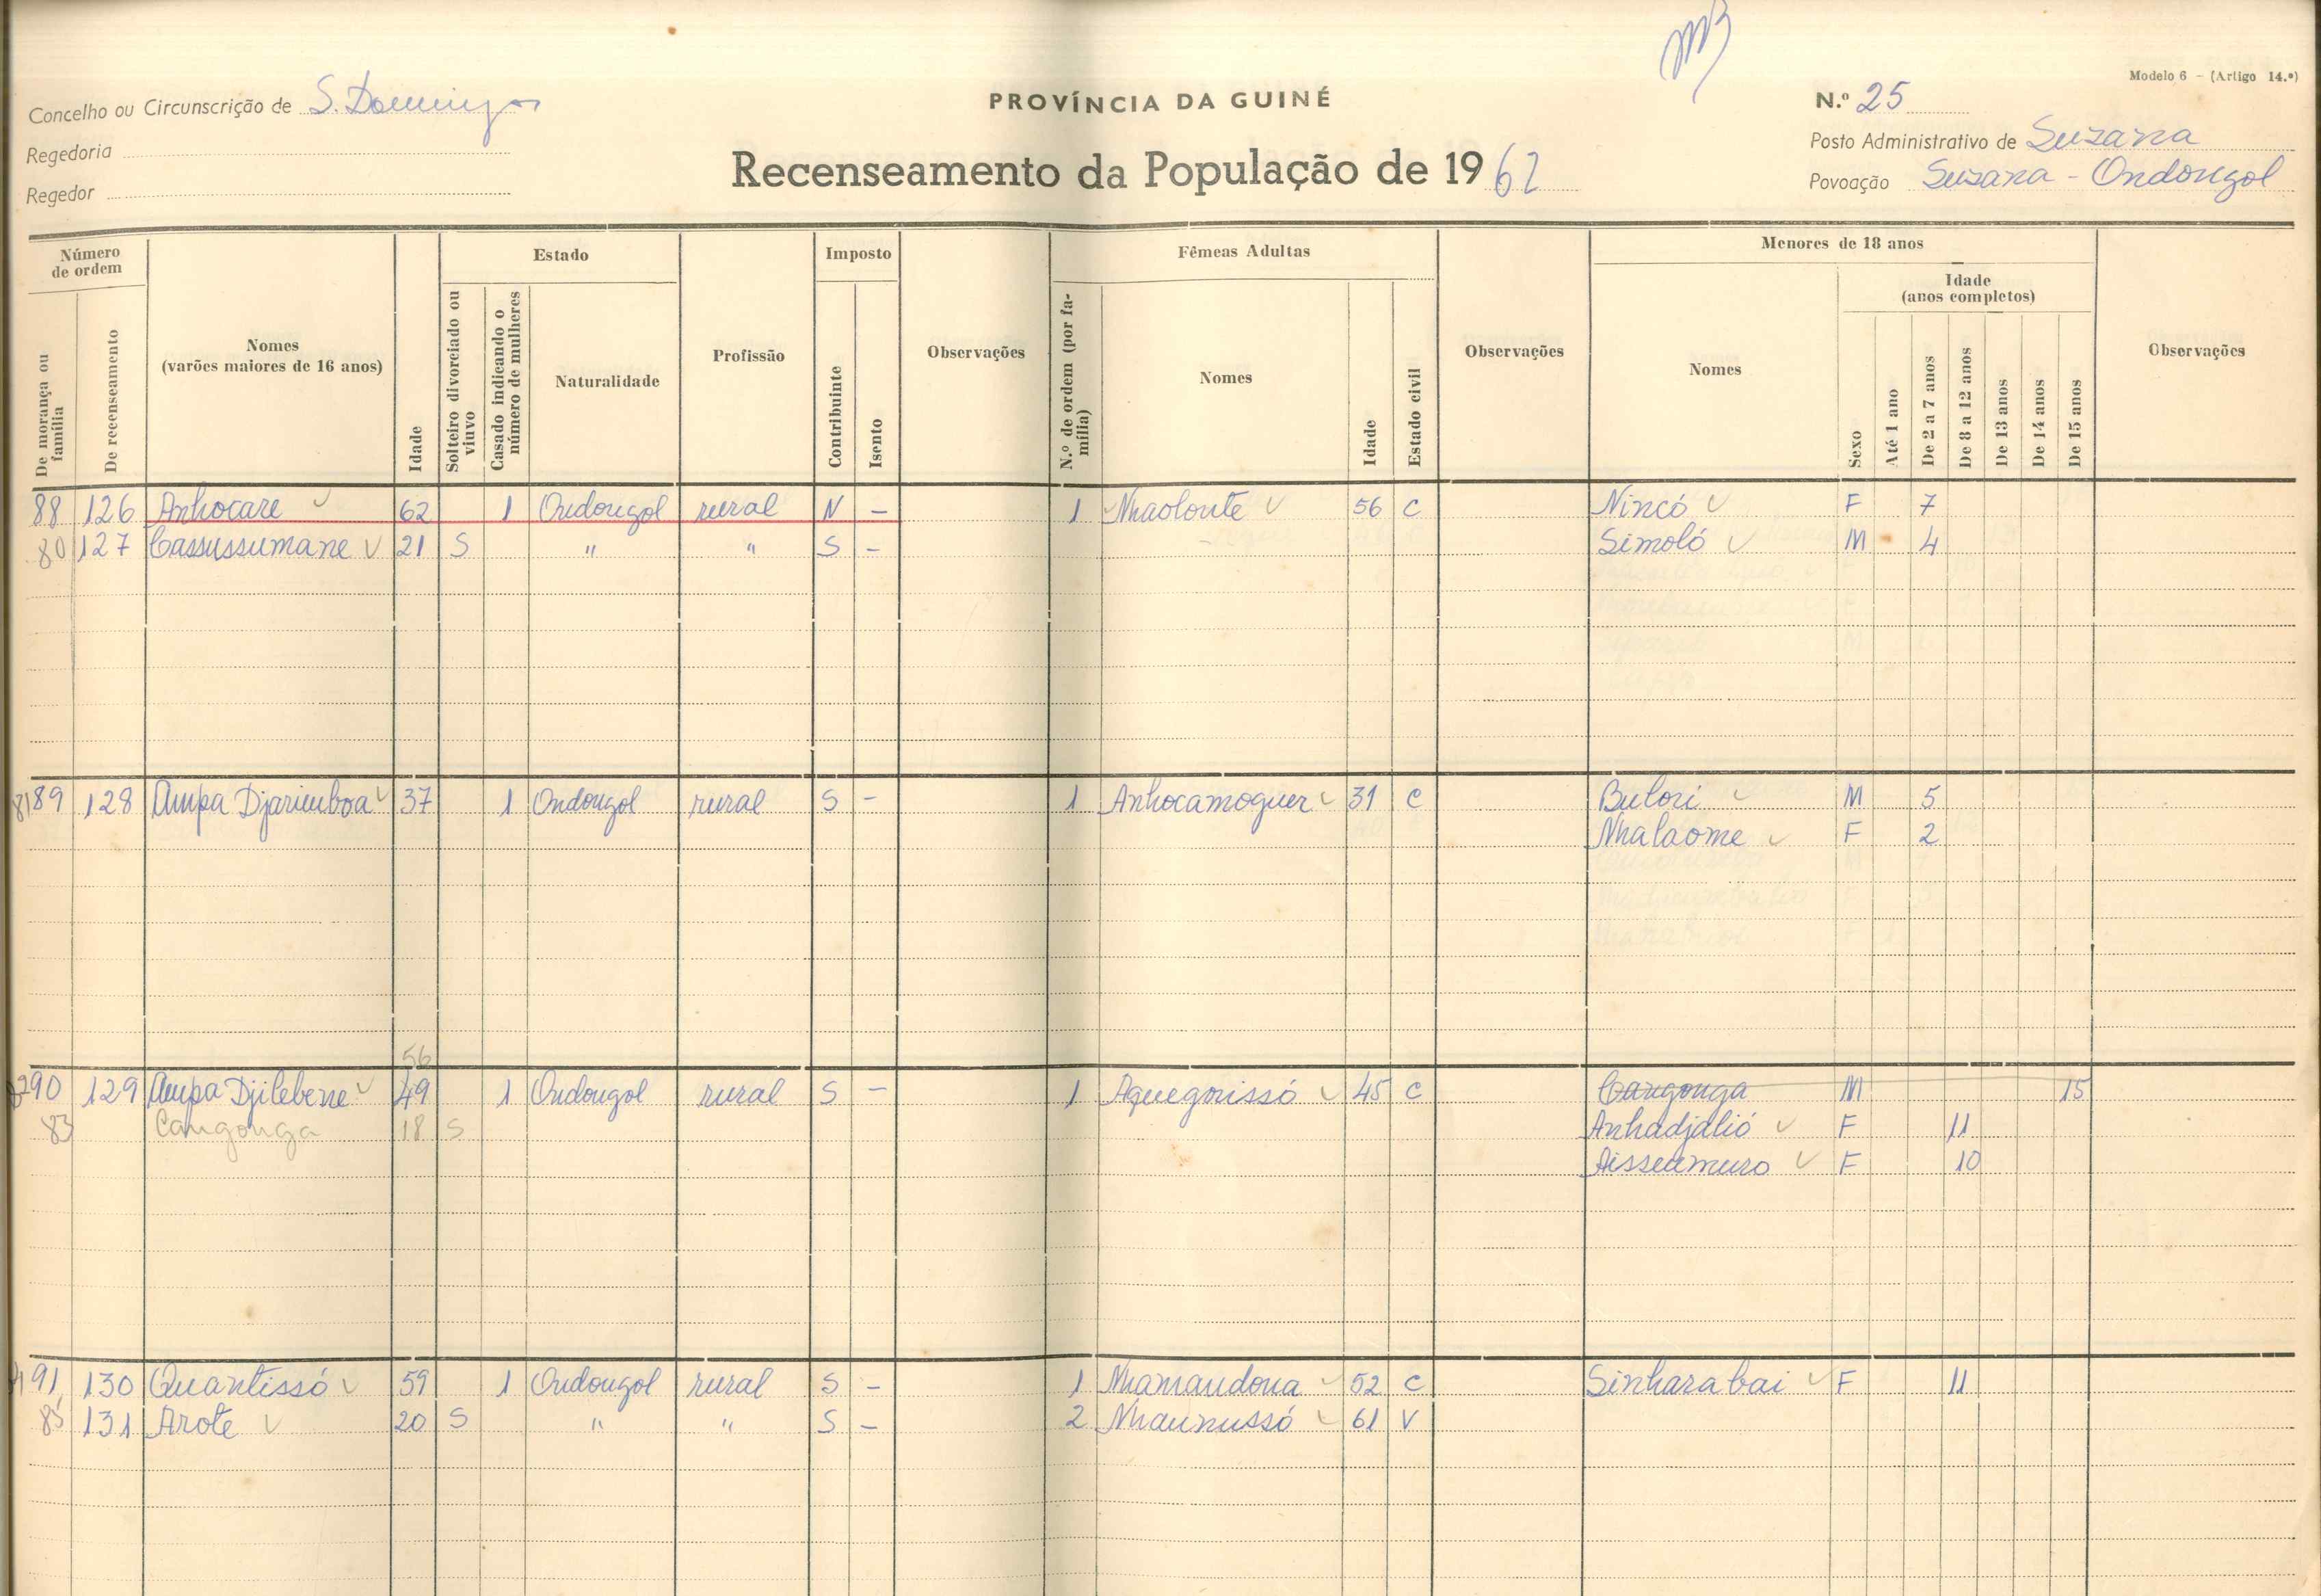 Modelo 6 - (Artigo 14.º)
Concelho ou Circunscrição de S. Domingos
PROVÍNCIA DA GUINÉ
N.º 25
Regedoria
Posto Administrativo de Suzana
Regedor
Recenseamento da População de 1962
Povoação Suzana - Ondongol
Número de ordem
Estado
Imposto
Fêmeas Adultas
Menores de 18 anos
De morança ou família
De recenseamento
Nomes (varões maiores de 16 anos)
Idade
Solteiro divorciado ou viuvo
Casado indicando o número de mulheres
Naturalidade
Profissão
Contribuinte
Isento
Observações
N.º de ordem (por família)
Nomes
Idade
Estado civil
Observações
Nomes
Sexo
Idade (anos completos)
Até 1 ano
De 2 a 7 anos
De 8 a 12 anos
De 13 anos
De 14 anos
De 15 anos
Observações
88 126 Anhocare 62 1 Ondongol rural N - 1 Nhaolonte 56 C Nincó F 7
80 127 Cassussumane 21 S " " S - Simoló M 4
81 89 128 Ampa Djarimboa 37 1 Ondongol rural S - 1 Anhocamoguer 31 C Bulori M 5
Nhalaome F 2
56
90 129 Ampa Djilebene 49 1 Ondongol rural S - 1 Aquegorissó 45 C Cangonga M 15
83 Cangonga 18 S Anhadjalió F 11
Aisseumuro F 10
91 130 Quantissó 59 1 Ondongol rural S - 1 Nhamandona 52 C Sinharabai F 11
85 131 Arote 20 S " " S - 2 Nhaunussó 61 V